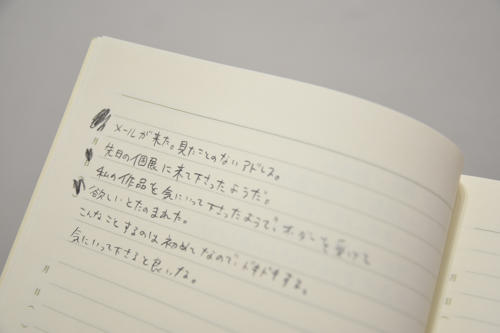 メールが来た。見たことのないアドレス。
月
先日の個展に来て下さったようだ。
日
私の作品を気にいって下さったようで、オーダーを受けて
欲しいとたのまれた。
こんなことするのは初めてなので、ドキドキする。
気にいって下さると良いな。
月
日
月
日
月
日